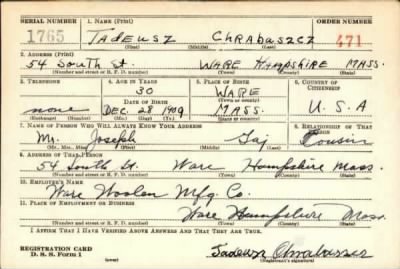 SERIAL NUMBER 1. NAME (Print) ORDER NUMBER
1765 TADEUSZ CHRABASZCZ 471
(First) (Middle) (Last)
2. ADDRESS (Print)
54 South St. WARE HAMPSHIRE MASS.
(Number and street or R. F. D. number) (Town) (County) (State)
3. TELEPHONE 4. AGE IN YEARS 5. PLACE OF BIRTH 6. COUNTRY OF CITIZENSHIP
30 WARE
(Town or county)
DATE OF BIRTH
none DEC. 28 1909 MASS. U.S.A
(Exchange) (Number) (Mo.) (Day) (Yr.) (State or country)
7. NAME OF PERSON WHO WILL ALWAYS KNOW YOUR ADDRESS 8. RELATIONSHIP OF THAT PERSON
Mr. Joseph Gaj Cousin
(Mr., Mrs., Miss) (First) (Middle) (Last)
9. ADDRESS OF THAT PERSON
54 South St. Ware Hampshire Mass.
(Number and street or R. F. D. number) (Town) (County) (State)
10. EMPLOYER'S NAME
Ware Woolen Mfg. Co.
11. PLACE OF EMPLOYMENT OR BUSINESS
Ware Hampshire Mass.
(Number and street or R. F. D. number) (Town) (County) (State)
I AFFIRM THAT I HAVE VERIFIED ABOVE ANSWERS AND THAT THEY ARE TRUE.
REGISTRATION CARD
D. S. S. Form 1 Tadeusz Chrabaszcz
(Registrant's signature)